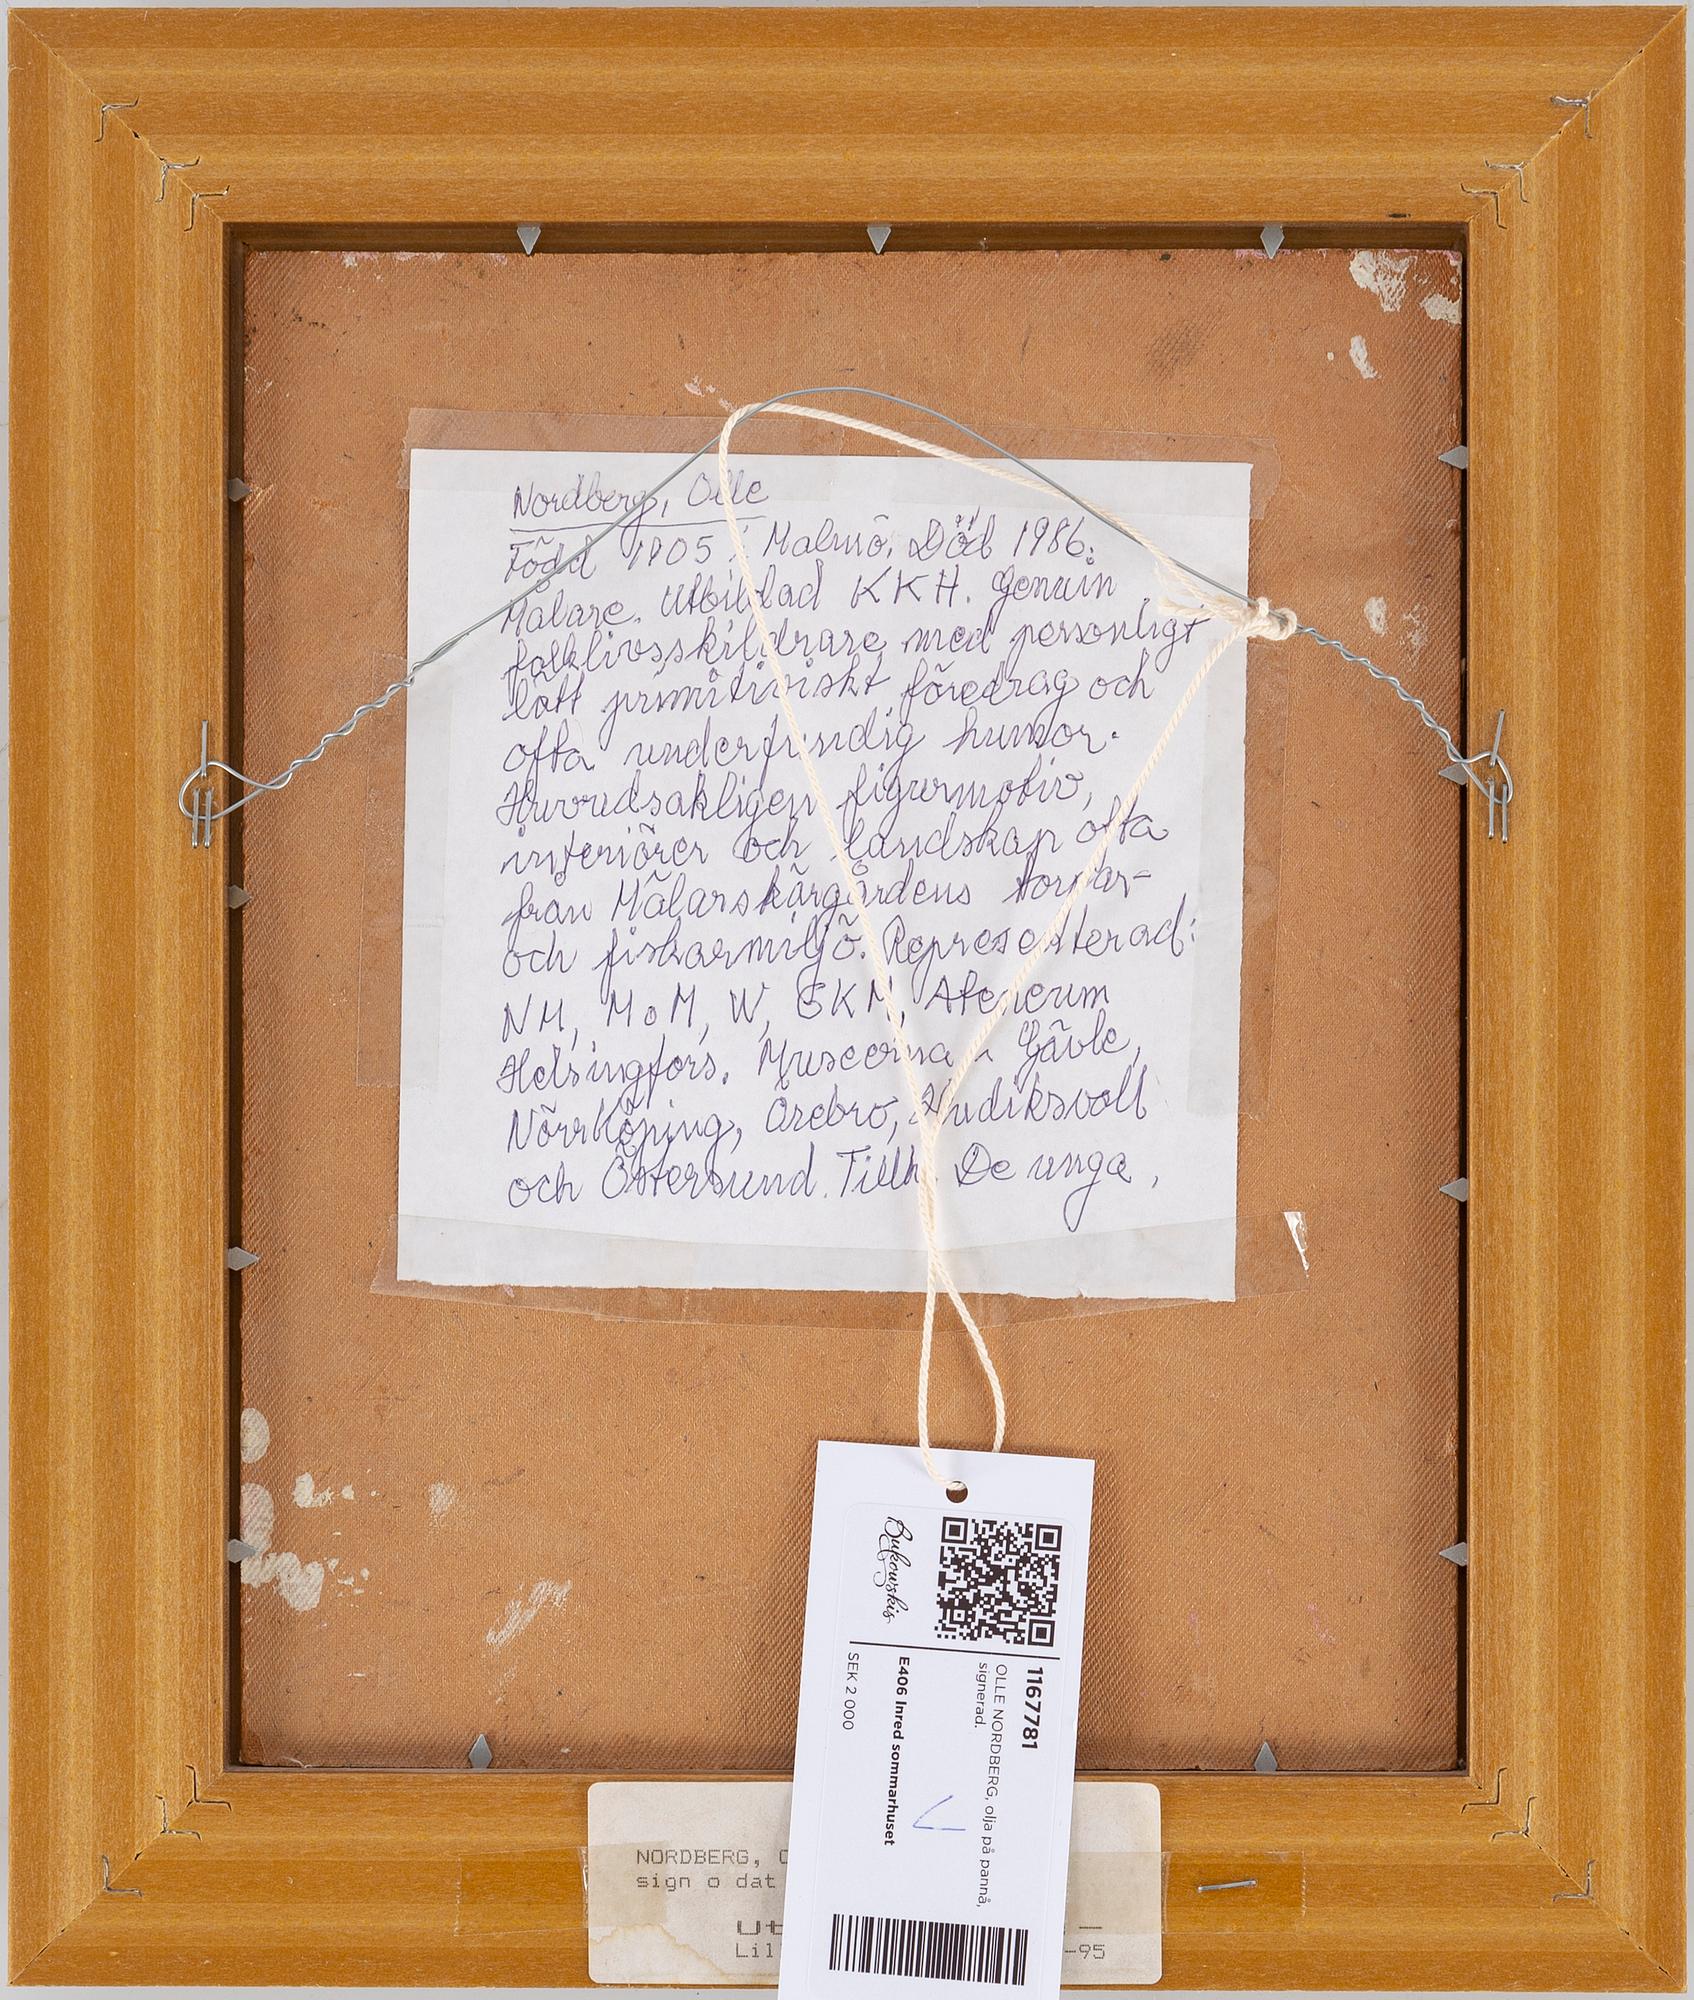 Nordberg, Olle
Född 1905 i Malmö. Död 1986.
Målare. Utbildad KKH. Genuin
folklivsskildrare med personligt
lätt primitiviskt föredrag och
ofta underfundig humor.
Huvudsakligen figurmotiv,
interiörer och landskap ofta
från Mälarskärgårdens torpar-
och fiskarmiljö. Representerad:
NM, MoM, W, GKM, Ateneum
Helsingfors. Museerna i Gävle,
Norrköping, Örebro, Hudiksvall
och Östersund. Tillh. De unga.
Bukowskis
1167781
OLLE NORDBERG, olja på pannå,
signerad.
E406 Inred sommarhuset
SEK 2 000
NORDBERG, O
sign o dat
Ut
Lil -95